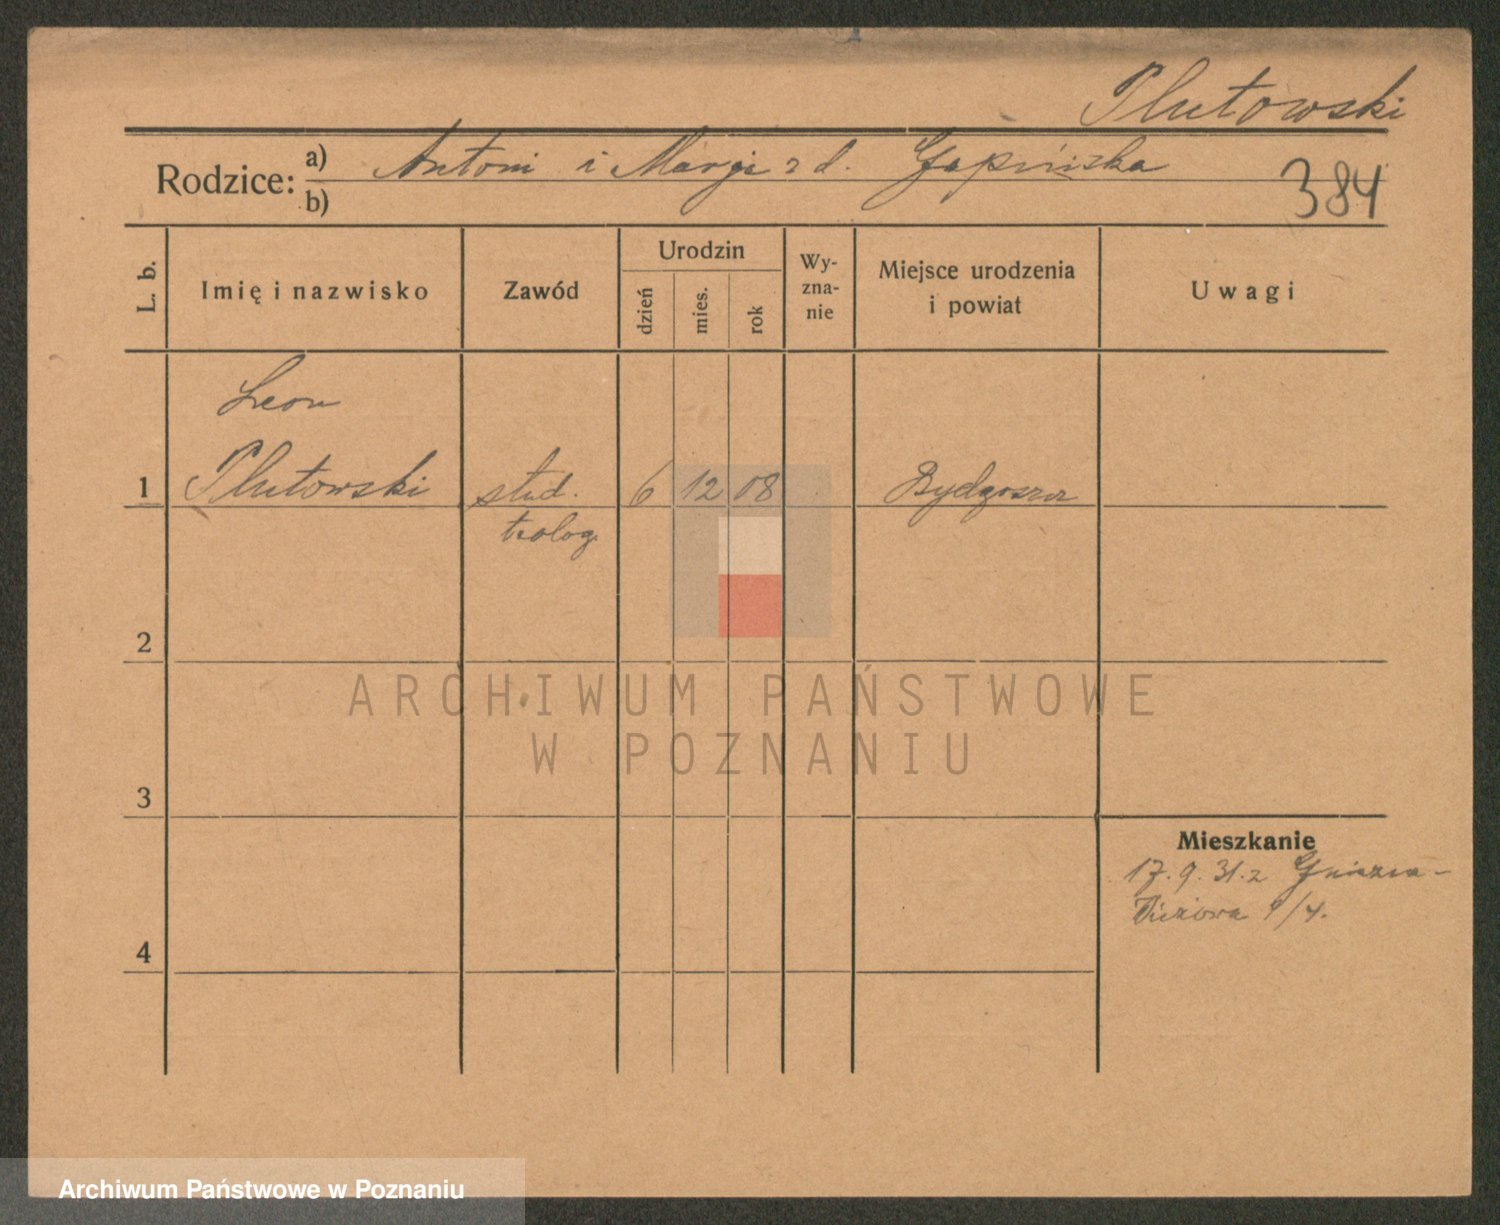 Plutowski
Rodzice: a) Antoni i Marja z d. Gapińska
b)
384
L. b.
Imię i nazwisko
Zawód
Urodzin
dzień
mies.
rok
Wy-
zna-
nie
Miejsce urodzenia
i powiat
Uwagi
Leon
1 Plutowski stud. 6 12 08 Bydgoszcz
teolog.
2
ARCHIWUM PAŃSTWOWE
W POZNANIU
3
Mieszkanie
17.9.31. z Gniezna -
9/4.
4
Archiwum Państwowe w Poznaniu